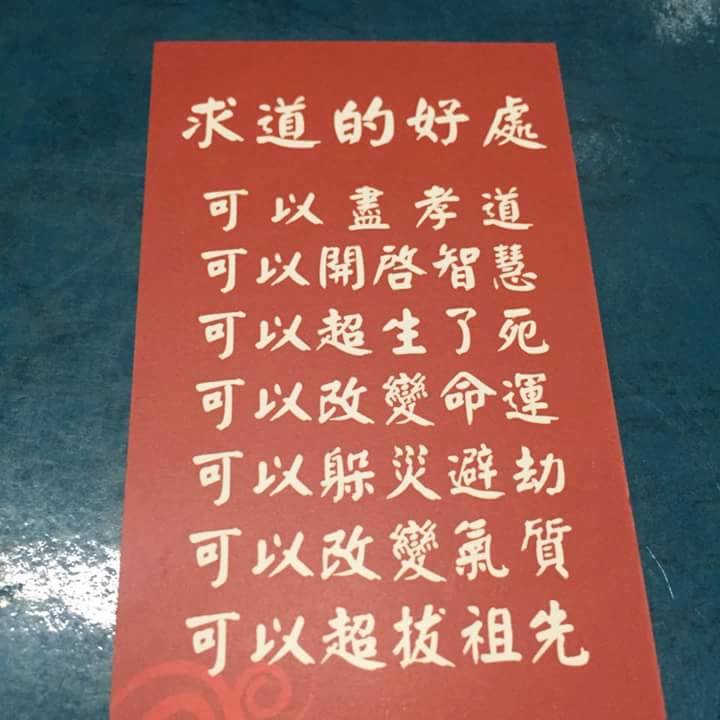 求道的好處
可以盡孝道
可以開啓智慧
可以超生了死
可以改變命運
可以躲災避劫
可以改變氣質
可以超拔祖先